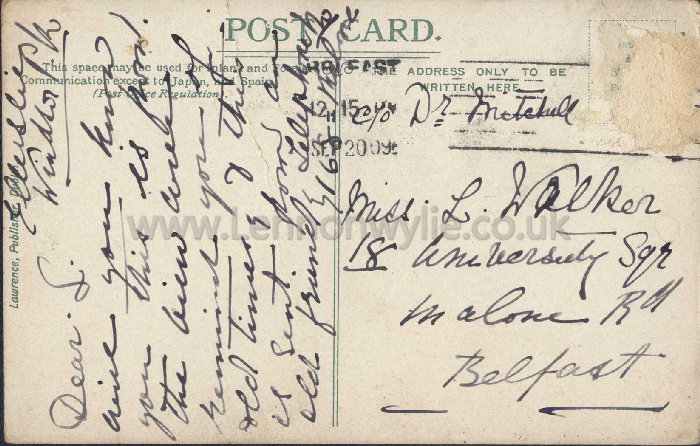 POST CARD.
This space may be used for Inland and Foreign
Communication except to Japan, and Spain
(Post Office Regulation).
THE ADDRESS ONLY TO BE
WRITTEN HERE.
BELFAST
12.15
SEP 20 09
c/o Dr Mitchell
Miss. L. Walker
18 University Sqr
Malone Rd
Belfast
Windsor Pk
Dear L.
you know
you this is from!
The view will
remind you of
old times & this
is sent from an
old friend
Lawrence, Publisher, Dublin
www.Lennonwylie.co.uk